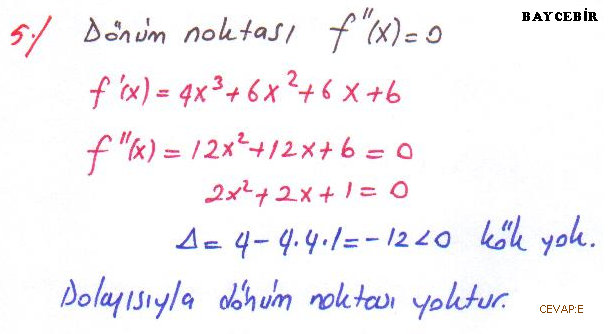 BAYCEBİR
5./ Dönüm noktası f''(x)=0
f'(x)=4x³+6x²+6x+6
f''(x)=12x²+12x+6=0
2x²+2x+1=0
Δ=4-4.4.1=-12<0 kök yok.
Dolayısıyla dönüm noktası yoktur.
CEVAP:E